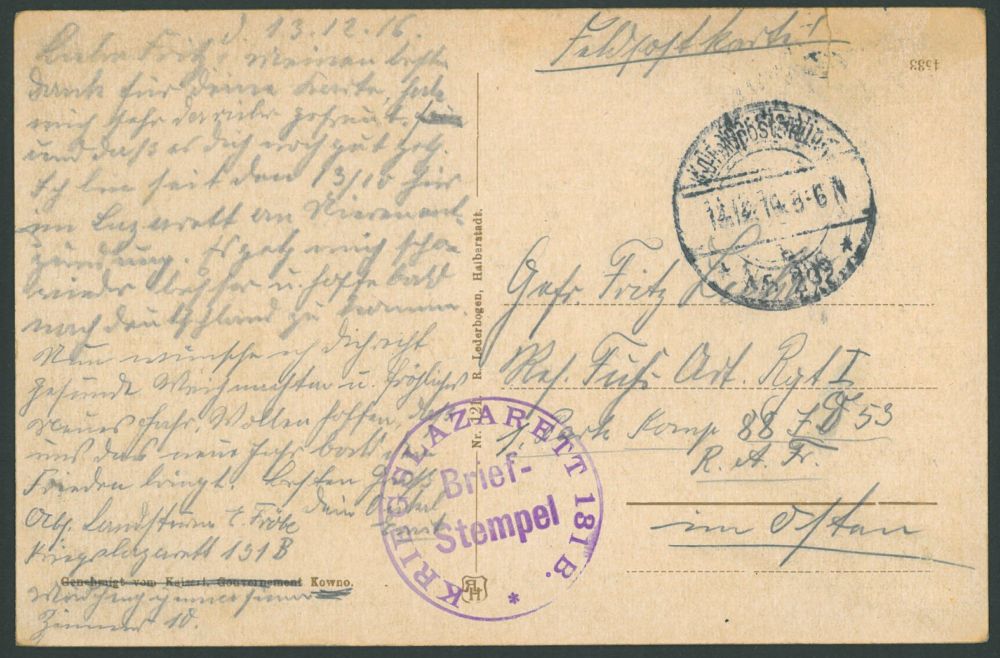 d. 13.12.16.
Lieber Fritz! Meinen besten
Dank für deine Karte, hab
mich sehr darüber gefreut.
und daß es dich noch gut geht.
Ich bin seit den 13/10 hier
im Lazarett an Nierenent-
zündung. Es geht mich schon
wieder besser u. hoffe bald
nach Deutschland zu kommen.
Nun wünsche ich dich recht
gesunde Weihnachten u. fröhliches
Neues Jahr. Wollen hoffen, daß
uns das neue Jahr bald
Frieden bringt. Besten Gruß
dein Onkel
Abs. Landsturm E. Fröbe
Kriegslazarett 131 B
Genehmigt vom Kaiserl. Gouvernement Kowno.
Zimmer 10.
Nr. 121. R. Lederbogen, Halberstadt.
RLH
Feldpostkarte!
4583
K.D. FELDPOSTSTATION
14.12. 3-6 N
Gefr. Fritz
Res. Fuß Art. Rgt I
1. Park Komp 88 I D 53
R. A. Fr.
im Osten
KRIEGSLAZARETT 131 B.
Brief-
Stempel